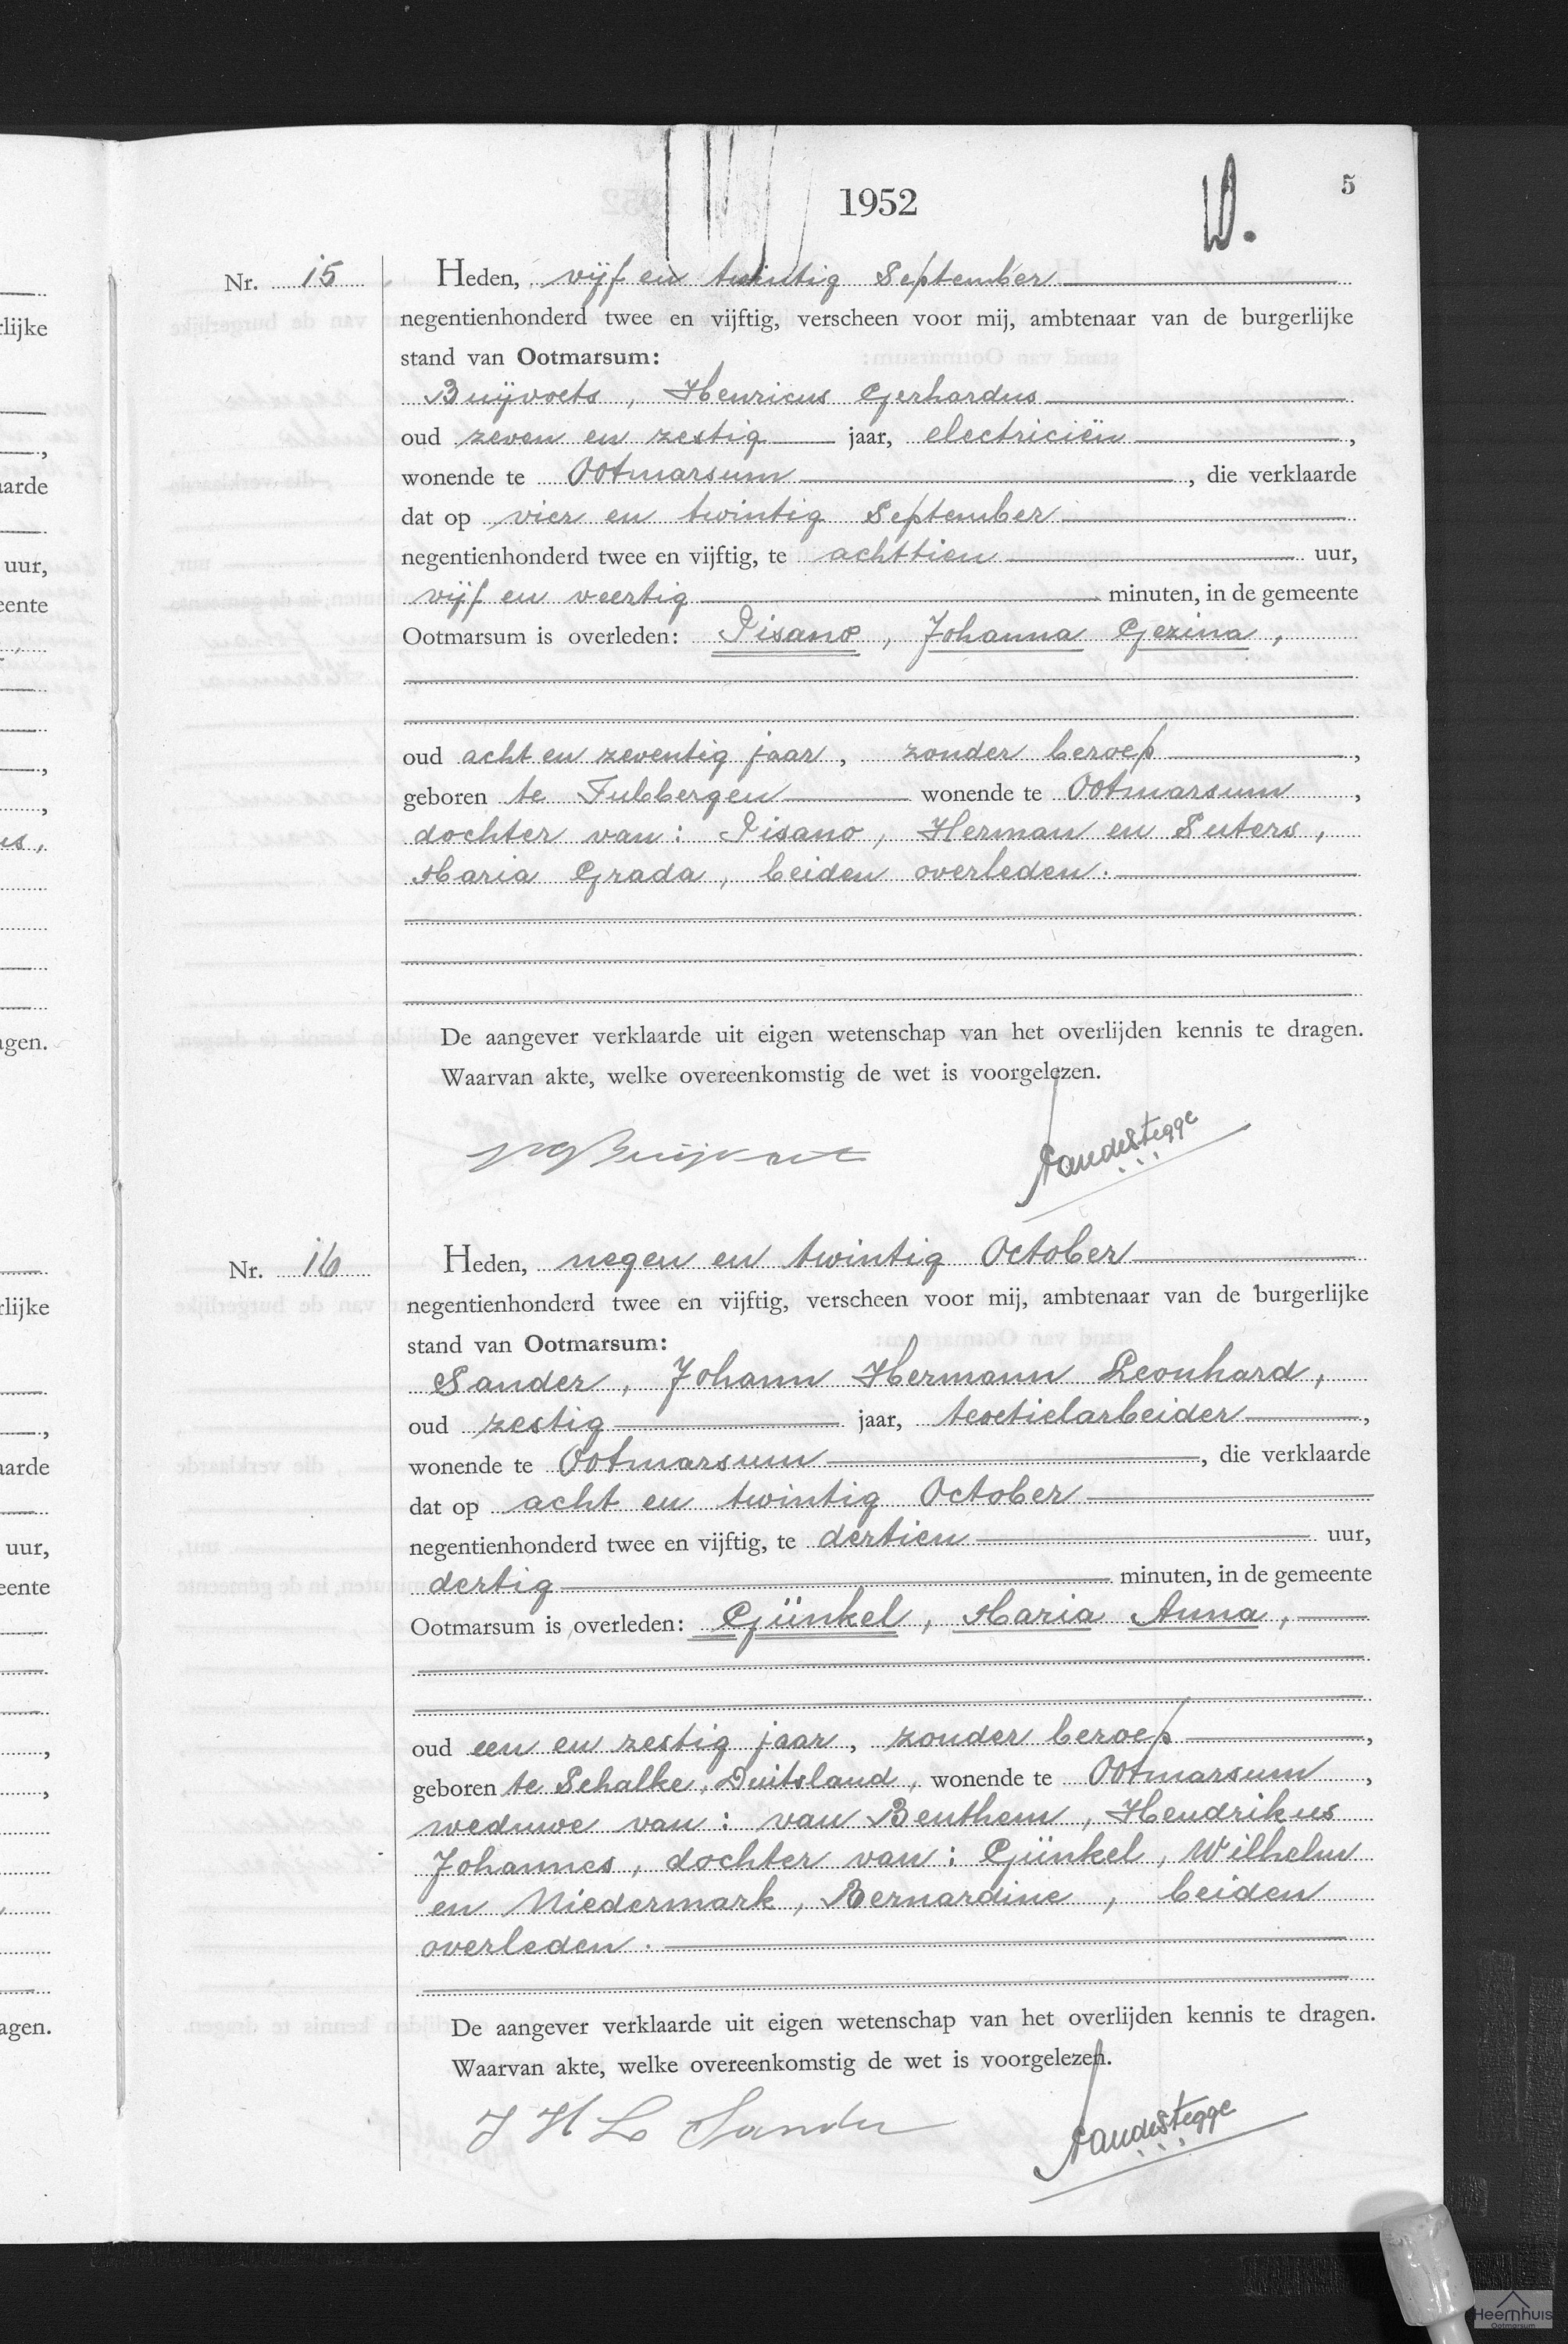 1952
5
Nr. 15
Heden, vijf en twintig September
negentienhonderd twee en vijftig, verscheen voor mij, ambtenaar van de burgerlijke
stand van Ootmarsum:
Buijvoets, Henricus Gerhardus
oud zeven en zestig jaar, electriciën,
wonende te Ootmarsum, die verklaarde
dat op vier en twintig September
negentienhonderd twee en vijftig, te achttien uur,
vijf en veertig minuten, in de gemeente
Ootmarsum is overleden: Pisano, Johanna Gezina,
oud acht en zeventig jaar, zonder beroep,
geboren te Tubbergen wonende te Ootmarsum,
dochter van: Pisano, Herman en Suters,
Maria Grada, beiden overleden.
De aangever verklaarde uit eigen wetenschap van het overlijden kennis te dragen.
Waarvan akte, welke overeenkomstig de wet is voorgelezen.
Nr. 16
Heden, negen en twintig October
negentienhonderd twee en vijftig, verscheen voor mij, ambtenaar van de burgerlijke
stand van Ootmarsum:
Sander, Johann Hermann Leonhard,
oud zestig jaar, textielarbeider,
wonende te Ootmarsum, die verklaarde
dat op acht en twintig October
negentienhonderd twee en vijftig, te dertien uur,
dertig minuten, in de gemeente
Ootmarsum is overleden: Günkel, Maria Anna,
oud een en zestig jaar, zonder beroep,
geboren te Schalke, Duitsland, wonende te Ootmarsum,
weduwe van: van Benthem, Hendrikus
Johannes, dochter van: Günkel, Wilhelm
en Niedermark, Bernardine, beiden
overleden.
De aangever verklaarde uit eigen wetenschap van het overlijden kennis te dragen.
Waarvan akte, welke overeenkomstig de wet is voorgelezen.
J H L Sander
Heemhuis
Ootmarsum
rlijke
aarde
uur,
eente
us,
agen.
rlijke
aarde
uur,
eente
agen.